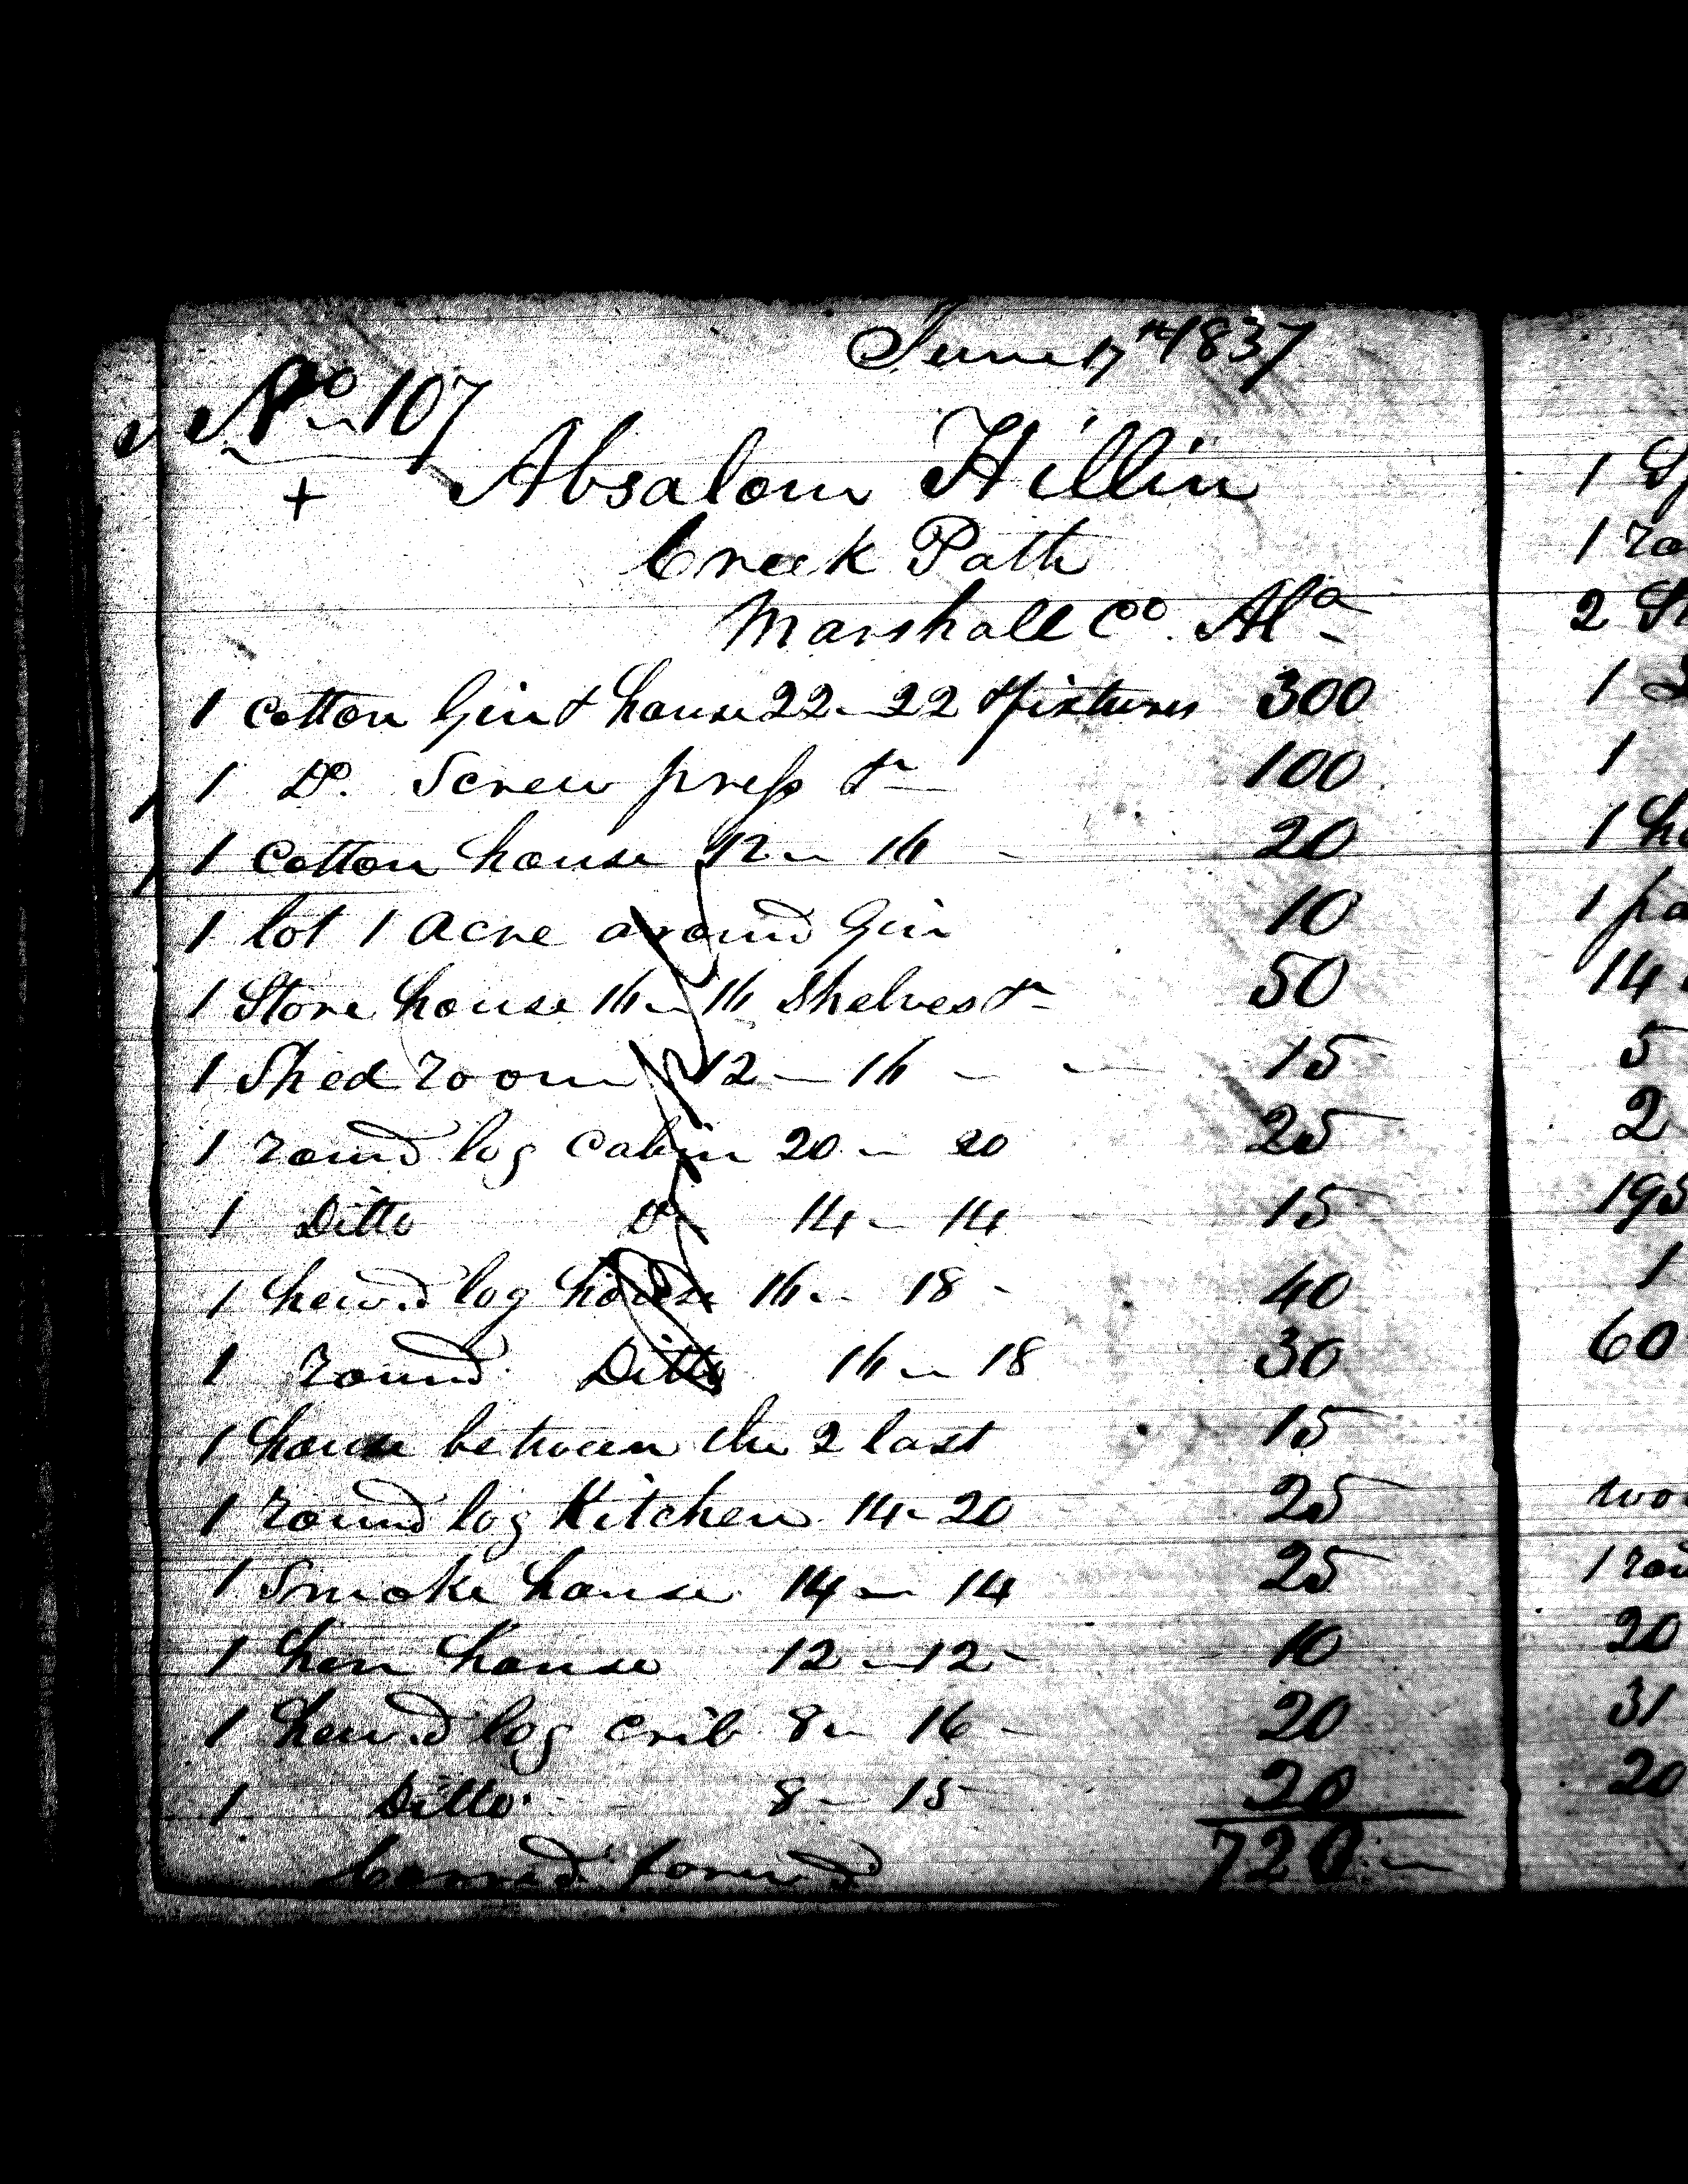 June 17th 1837
No 107
+ Absalom Hillin
Creek Path
Marshall Co. Ala
1 Cotton Gin & house 22 - 22 & fixtures 300
1 Do. Screw press &c 100
1 Cotton house 12 - 16 - 20
1 lot 1 acre around Gin 10
1 Store house 16 - 16 Shelves &c 50
1 Shed room 12 - 16 - - 15
1 round log Cabin 20 - 20 25
1 Ditto Do 14 - 14 15
1 hewd log house 16 - 18 - 40
1 round Ditto 16 - 18 30
1 house between the 2 last 15
1 round log Kitchen 14 - 20 25
1 Smoke house 14 - 14 25
1 hen house 12 - 12 - 10
1 hewd log crib 8 - 16 - 20
1 Ditto 8 - 15 20
Carrd forwd 720 -
1
1
2
1
1
1
1
14
5
2
195
1
60
1
20
31
20